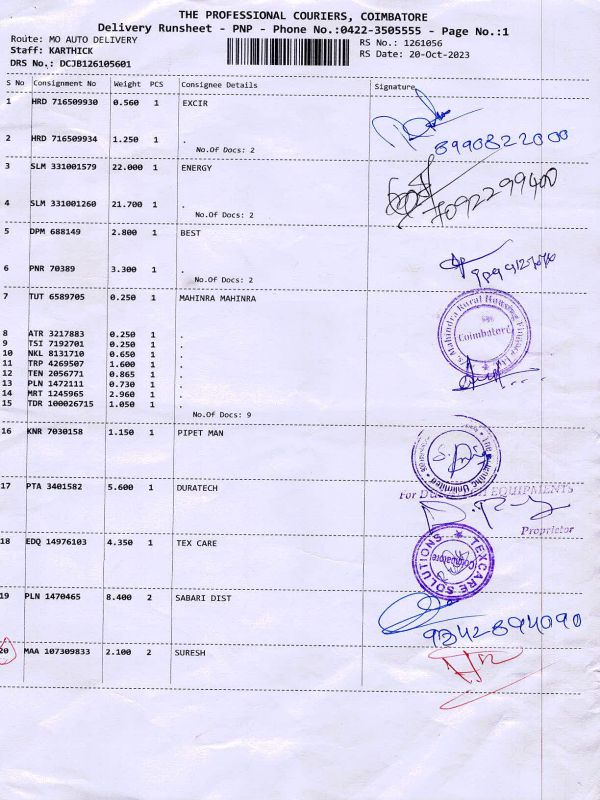 THE PROFESSIONAL COURIERS, COIMBATORE
Delivery Runsheet - PNP - Phone No.:0422-3505555 - Page No.:1
Route: MO AUTO DELIVERY RS No.: 1261056
Staff: KARTHICK RS Date: 20-Oct-2023
DRS No.: DCJB126105601
S No Consignment No Weight PCS Consignee Details Signature
1 HRD 716509930 0.560 1 EXCIR
2 HRD 716509934 1.250 1 .
8990822000
No.Of Docs: 2
3 SLM 331001579 22.000 1 ENERGY
4 SLM 331001260 21.700 1 .
7092299400
No.Of Docs: 2
5 DPM 688149 2.800 1 BEST
6 PNR 70389 3.300 1 .
No.Of Docs: 2
7 TUT 6589705 0.250 1 MAHINRA MAHINRA
Mahindra Rural Housing Finance
Coimbatore
8 ATR 3217883 0.250 1 .
9 TSI 7192701 0.250 1 .
10 NKL 8131710 0.650 1 .
11 TRP 4269507 1.600 1 .
12 TEN 2056771 0.865 1 .
13 PLN 1472111 0.730 1 .
14 MRT 1245965 2.960 1 .
15 TDR 100026715 1.050 1 .
No.Of Docs: 9
16 KNR 7030158 1.150 1 PIPET MAN
Unlimited
17 PTA 3401582 5.600 1 DURATECH
For EQUIPMENTS
Proprietor
18 EDQ 14976103 4.350 1 TEX CARE
TEXCARE SOLUTIONS
Coimbatore
19 PLN 1470465 8.400 2 SABARI DIST
9342894090
20 MAA 107309833 2.100 2 SURESH